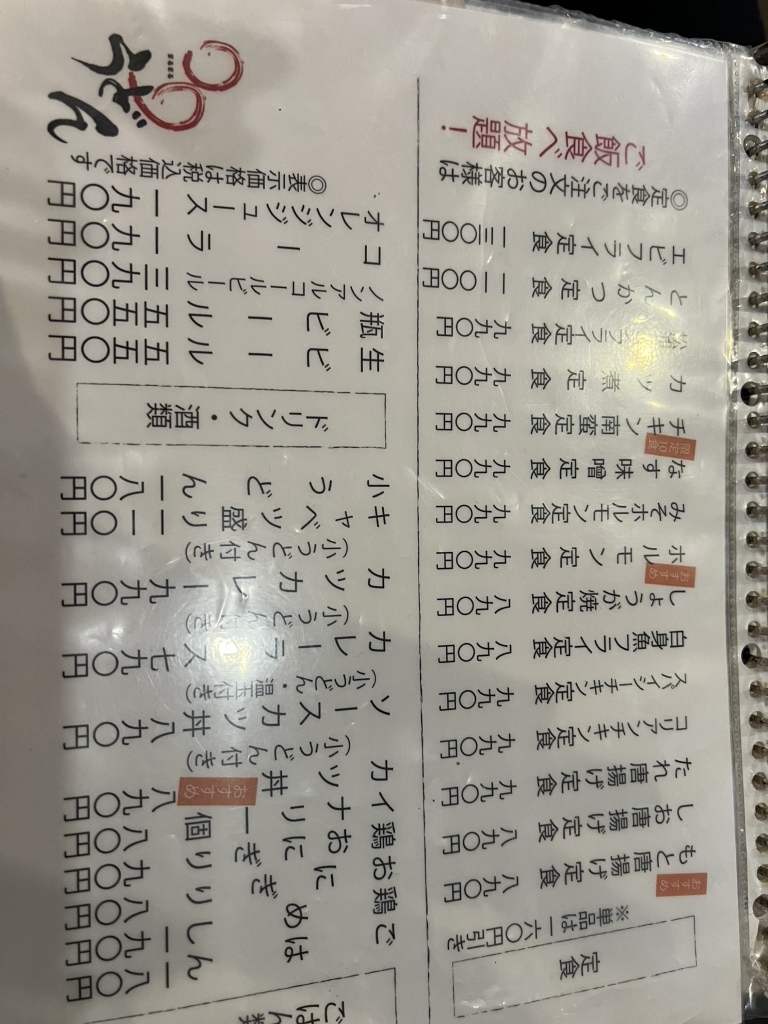 定食
※単品は一六〇円引き
もと唐揚げ定食 八九〇円
おすすめ
しお唐揚げ定食 八九〇円
たれ唐揚げ定食 九九〇円
コリアンチキン定食 九九〇円
スパイシーチキン定食 九九〇円
白身魚フライ定食 八九〇円
しょうが焼定食 八九〇円
ホルモン定食 九九〇円
おすすめ
みそホルモン定食 九九〇円
なす味噌定食 九九〇円
チキン南蛮定食 九九〇円
限定10食
カツ煮定食 九九〇円
フライ定食 九九〇円
とんかつ定食 一一〇〇円
エビフライ定食 一三〇〇円
◎定食をご注文のお客様は
ご飯食べ放題！
ごはん類
ごはん 一八〇円
鶏めし 一九〇円
おにぎり 八〇円
鶏おにぎり 九〇円
イナリ一個 八〇円
カツ丼 八九〇円
おすすめ
(小うどん付き)
ソースカツ丼 八九〇円
(小うどん・温玉付き)
カレーライス 七九〇円
(小うどん付き)
カツカレー 九九〇円
(小うどん付き)
キャベツ盛り 一一〇円
小うどん 一八〇円
ドリンク・酒類
生ビール 五五〇円
瓶ビール 五五〇円
ノンアルコールビール 三九〇円
コーラ 一九〇円
オレンジジュース 一九〇円
◎表示価格は税込価格です
まるまる
うどん